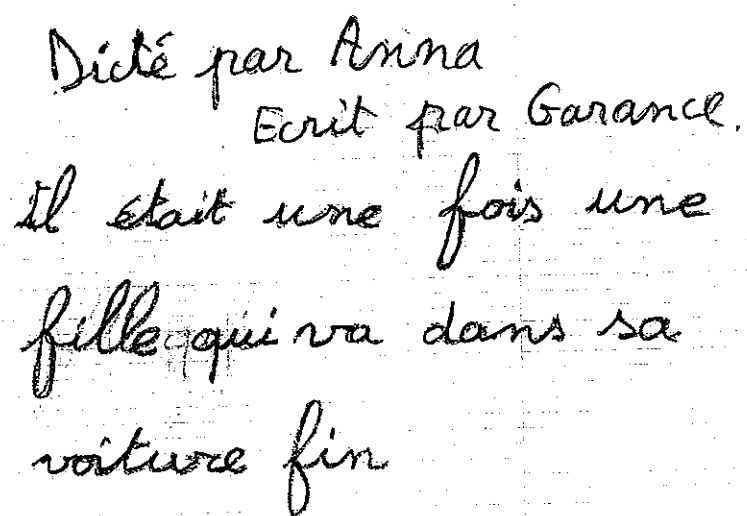 Dicté par Anna
Ecrit par Garance.
Il était une fois une
fille qui va dans sa
voiture fin